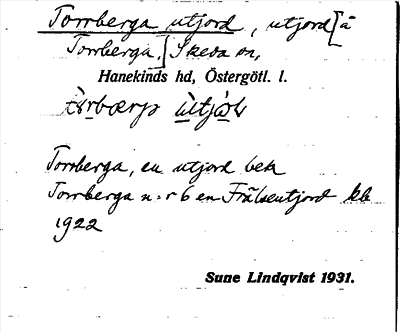 Torrberga utjord, utjord[å
Torrberga.] Skeda sn,
Hanekinds hd, Östergötl. l.
Torrberga, en utjord bek
Torrberga n:r 6 en Frälseutjord kb
1922
Sune Lindqvist 1931.